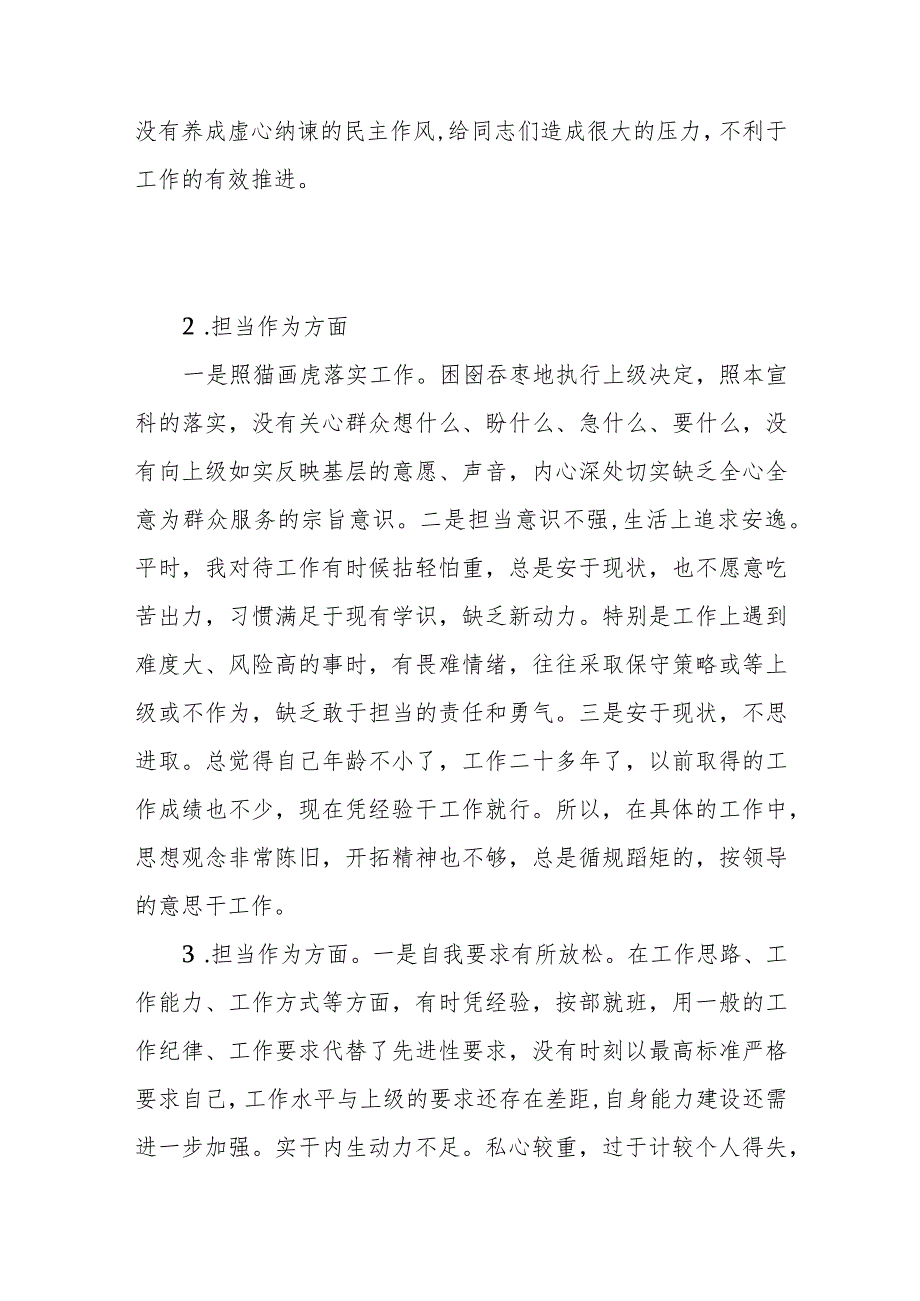 没有养成虚心纳谏的民主作风,给同志们造成很大的压力，不利于
工作的有效推进。
2 .担当作为方面
一是照猫画虎落实工作。困囹吞枣地执行上级决定，照本宣
科的落实，没有关心群众想什么、盼什么、急什么、要什么，没
有向上级如实反映基层的意愿、声音，内心深处切实缺乏全心全
意为群众服务的宗旨意识。二是担当意识不强,生活上追求安逸。
平时，我对待工作有时候拈轻怕重，总是安于现状，也不愿意吃
苦出力，习惯满足于现有学识，缺乏新动力。特别是工作上遇到
难度大、风险高的事时，有畏难情绪，往往采取保守策略或等上
级或不作为，缺乏敢于担当的责任和勇气。三是安于现状，不思
进取。总觉得自己年龄不小了，工作二十多年了，以前取得的工
作成绩也不少，现在凭经验干工作就行。所以，在具体的工作中，
思想观念非常陈旧，开拓精神也不够，总是循规蹈矩的，按领导
的意思干工作。
3 .担当作为方面。一是自我要求有所放松。在工作思路、工
作能力、工作方式等方面，有时凭经验，按部就班，用一般的工
作纪律、工作要求代替了先进性要求，没有时刻以最高标准严格
要求自己，工作水平与上级的要求还存在差距,自身能力建设还需
进一步加强。实干内生动力不足。私心较重，过于计较个人得失，